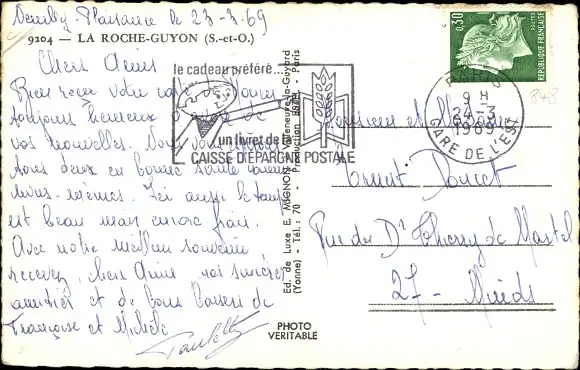 Neuilly-Plaisance le 23-3-69
9204 — LA ROCHE-GUYON (S.-et-O.)
Chers Amis
Bien reçu votre
toujours heureux
vos nouvelles.
tous deux en bonne santé comme
nous-mêmes. Ici aussi le temps
est beau mais encore frais.
Avec notre meilleur souvenir
recevez, chers Amis nos sincères
amitiés et de bons baisers de
Françoise et Michèle
Paulette
le cadeau préféré...
un livret de la
CAISSE D'EPARGNE POSTALE
Ed. de Luxe E. MIGNON - Villeneuve-la-Guyard
(Yonne) Tél.: 70 - Production - Paris
PHOTO
VERITABLE
0,30
POSTES
REPUBLIQUE FRANÇAISE
PARIS
9 H
24-3
1969
GARE DE L'EST
848
Monsieur et Madame
Ernest
Rue du Dr Thierry de Martel
27 -